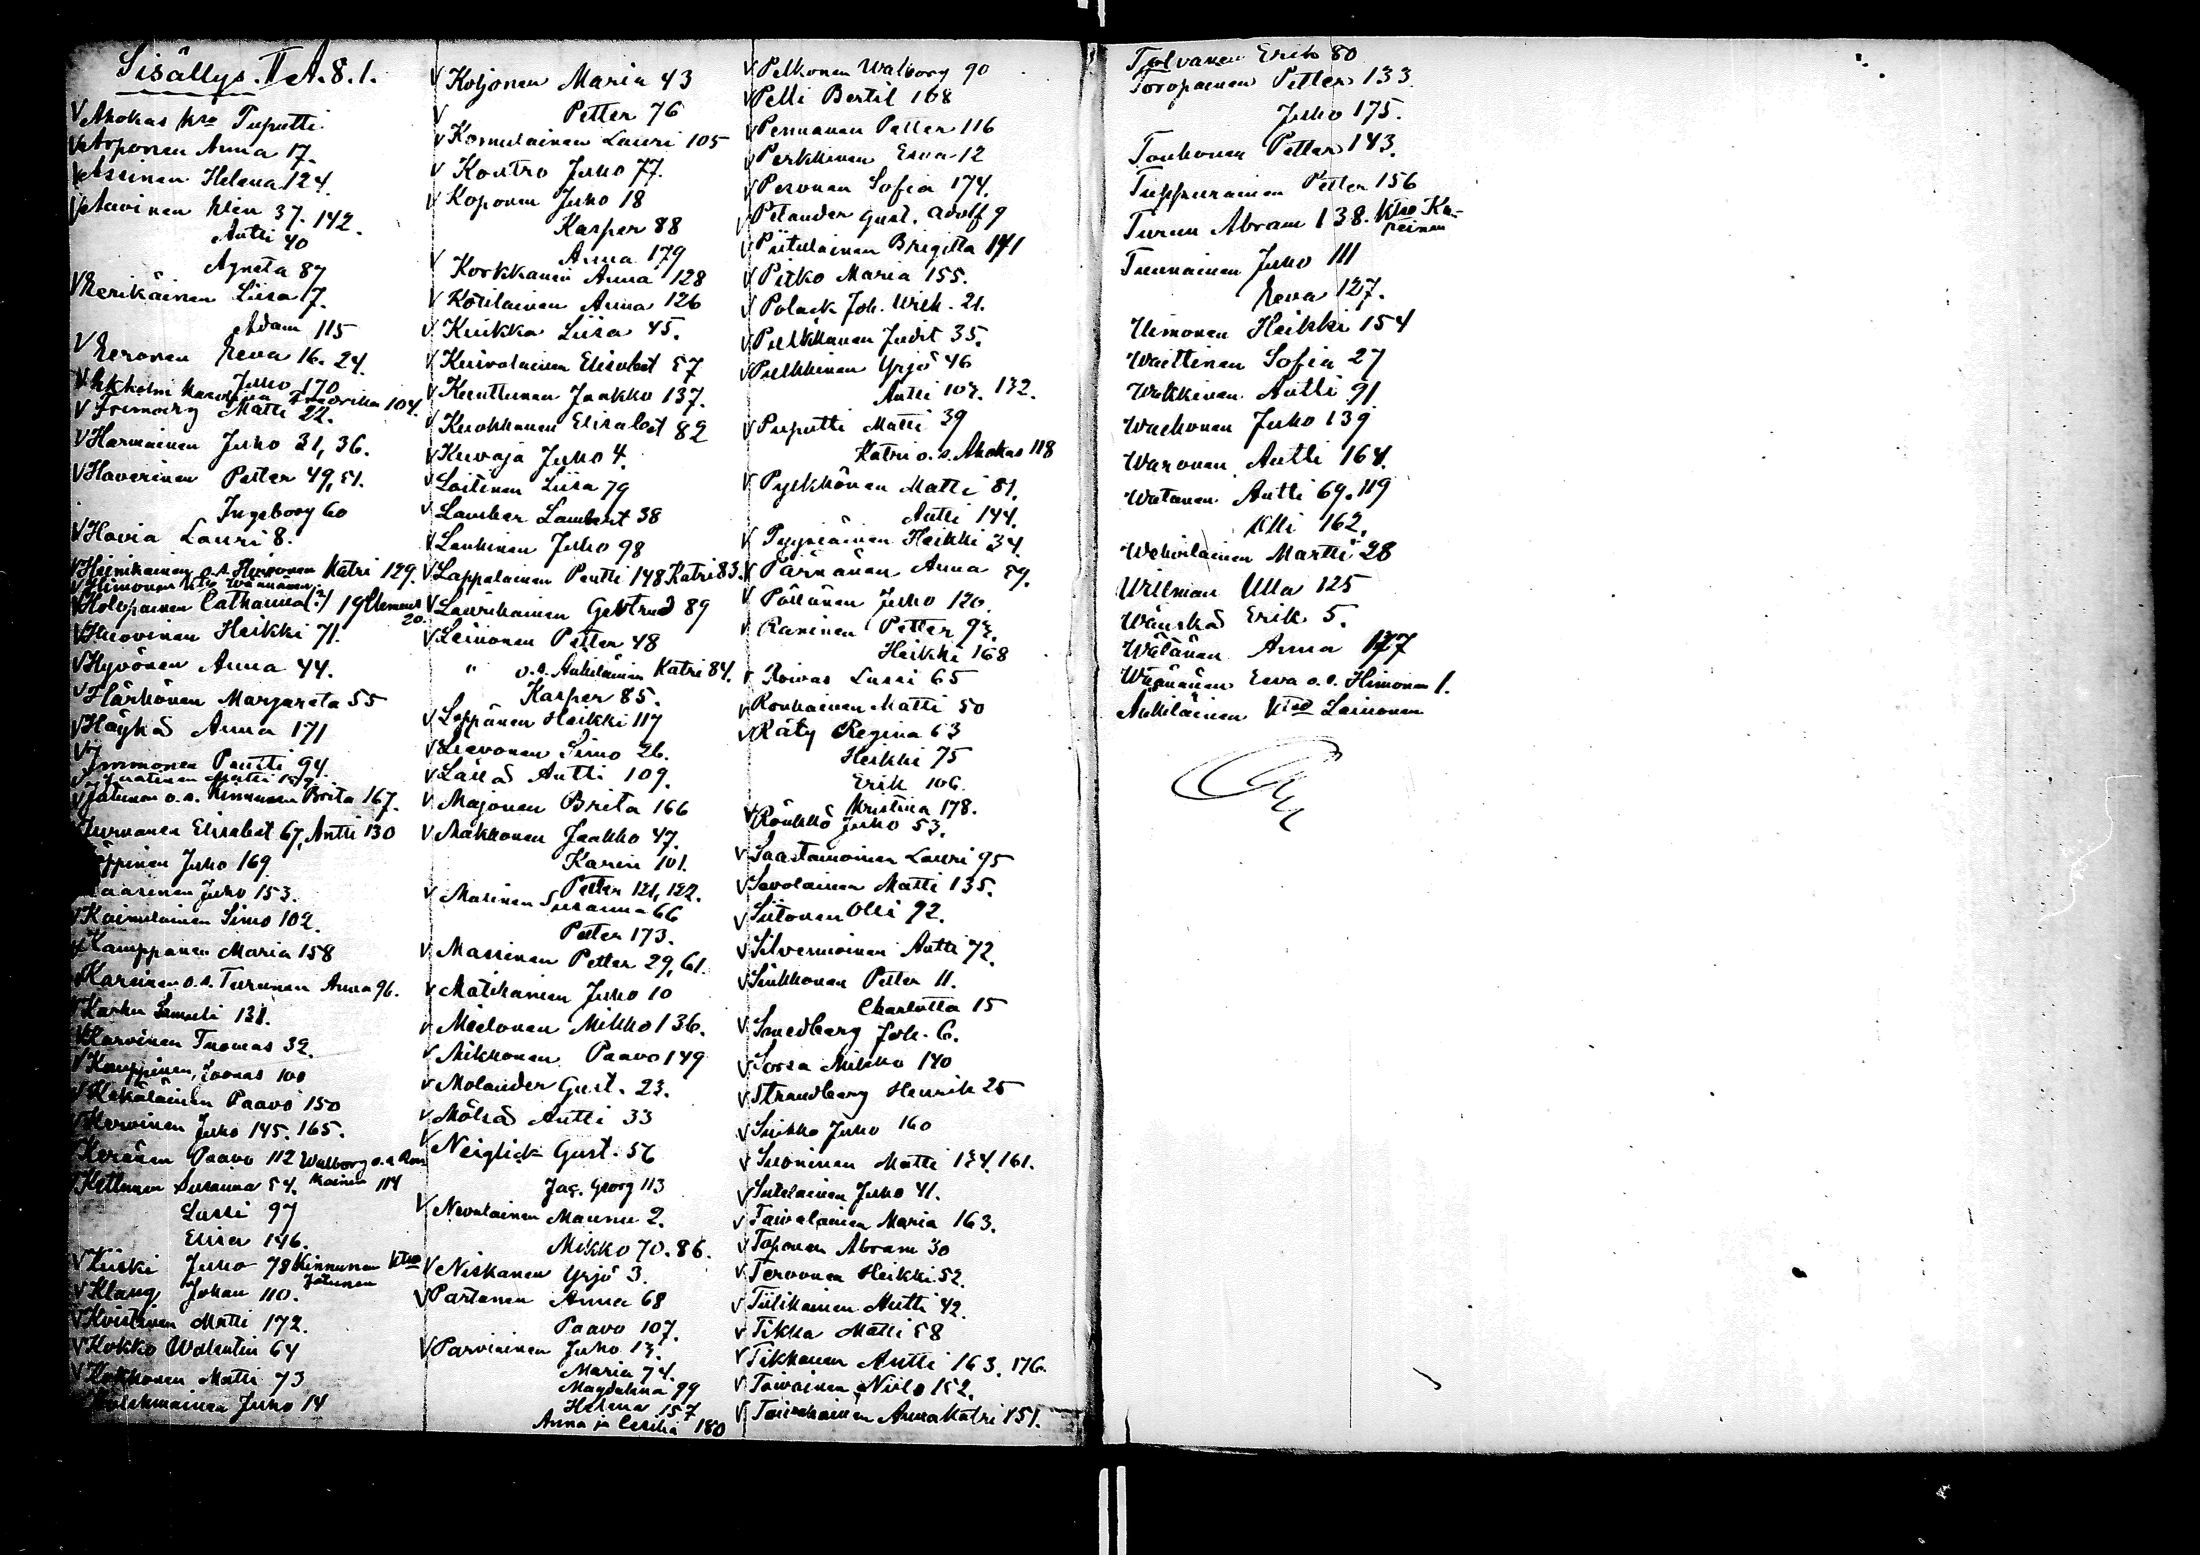 Sisällys. II A.8.1.
V Ahokas kts Puputti
V Arponen Anna 17.
V Assinen Helena 124.
V Auvinen Elin 37. 142.
Antti 40
Agneta 87
V Eerikäinen Liisa 7.
Adam 115
V Eeronen Eeva 16. 24.
Juho 170
V Ekholm Fredrika 104.
V Matti 22.
V Harmainen Juho 31, 36.
V Haverinen Petter 49, 51.
Ingeborg 60
V Havia Lauri 8.
V Heinikainen o.s. Hirvonen Katri 129.
V Himonen kts Wäänänen
V Holopainen Catharina (?) 19 Clemens 20.
V Huovinen Heikki 71.
V Hyvönen Anna 44.
V Härkönen Margareta 55
V Häyhä Anna 171
V Immonen Pentti 94.
V Matti 159
V Jätunen o.s. Kinnunen Brita 167.
Jurvanen Elisabet 67, Antti 130
ppinen Juho 169
aasinen Juho 153.
V Kainulainen Simo 102.
V Kamppanen Maria 158
V Karinen o.s. Turunen Anna 96.
V Karhu Samuli 131.
V Karvinen Tuomas 32.
V Kauppinen, Joonas 100
V Kekäläinen Paavo 150
V Kervinen Juho 145. 165.
Keränen Paavo 112 Walborg o.s. Ron
kainen 114
V Kettunen Susanna 54.
Lassi 97
Elisa 146.
V Kiiski Juho 78 Kinnunen ktso
Jätunen
V Klang Johan 110.
V Kvistinen Matti 172.
V Kokko Walentin 64
V Kokkonen Matti 73
Kolehmainen Juho 14
V Koljonen Maria 43
V Petter 76
V Komulainen Lauri 105
V Kontro Juho 77.
V Koponen Juho 18
Kasper 88
V Anna 179
Korkkanen Anna 128
V Köttilainen Anna 126
V Kuikka Liisa 45.
V Kuivalainen Elisabet 57
V Kunttunen Jaakko 137.
V Kuokkanen Elisabet 82
V Kuvaja Juho 4.
V Laitinen Liisa 79
V Lamber Lambert 38
V Laukinen Juho 98
V Lappalainen Pentti 148 Katri 83.
V Laurikainen Gertrud 89
V Leinonen Petter 48
" o.s. Auhiläinen Katri 84.
Kasper 85.
V Leppänen Heikki 117
V Lievonen Simo 26.
V Läkiä Antti 109.
V Majonen Brita 166
V Makkonen Jaakko 47.
Karin 101.
Petter 121, 122.
V Malinen Susanna 66
Petter 173.
V Massinen Petter 29, 61.
V Matikainen Juho 10
V Mielonen Mikko 136.
V Mikkonen Paavo 149
V Molander Gust. 23.
V Mölsä Antti 33
V Neiglick Gust. 56
Jac. Georg 113
V Nevalainen Maunu 2.
Mikko 70. 86.
V Niskanen Yrjö 3.
V Partanen Anna 68
Paavo 107.
V Parviainen Juho 13.
Maria 74.
Magdalena 99
Helena 157
Anna ja Cecilia 180
V Pelkonen Walborg 90
V Pelli Bertil 108
V Pennanen Petter 116
V Perkkinen Eeva 12
V Pesonen Sofia 174.
V Petander Gust. Adolf 9
V Piitulainen Brigitta 141
V Pitko Maria 155.
V Polack Joh. Wilh. 21.
V Pulkkanen Judit 35.
V Pulkkinen Yrjö 46
Antti 103. 132.
V Puputti Matti 39
Katri o.s. Ahokas 118
V Pyykkönen Matti 81.
Antti 144.
V Pyysiäinen Heikki 34
V Pärnänen Anna 59.
V Pöllänen Juho 120.
V Raninen Petter 93.
Heikki 168
V Roivas Lassi 65
V Ronkainen Matti 50
V Räty Regina 63
Heikki 75
Erik 106
Kristina 178.
V Rönkkö Juho 53.
V Saastamoinen Lauri 95
V Savolainen Matti 135.
V Siitonen Olli 92.
V Silvennoinen Antti 72.
V Sinkkonen Petter 11.
Charlotta 15
V Smedberg Joh. 6.
V Sorsa Mikko 140
V Strandberg Henrik 25
V Suikko Juho 160
V Suoninen Matti 134. 161.
V Sutelainen Juho 41.
V Taivalainen Maria 163.
V Taponen Abram 30
V Tervonen Heikki 52.
V Tiilikainen Antti 42.
V Tikka Matti 58
V Tikkanen Antti 163. 176.
V Toivainen Niilo 152.
V Toivakainen Anna Katri 151.
Tolvanen Erik 80
Toropainen Petter 133
Juho 175.
Touhonen Petter 143.
Tuppurainen Petter 156
Turun Abram 138. ktso Ka-
rinen
Tuunainen Juho 111
Eeva 127.
Uimonen Heikki 154
Waittinen Sofia 27
Wakkinen Antti 91
Wachonen Juho 139
Waronen Antti 164.
Watanen Antti 69. 119
Olli 162.
Wehviläinen Martti 28
Willman Ulla 125
Wänskä Erik 5.
Wätänen Anna 177
Wäänänen Eeva o.s. Himonen 1.
Auhiläinen ktso Leinonen